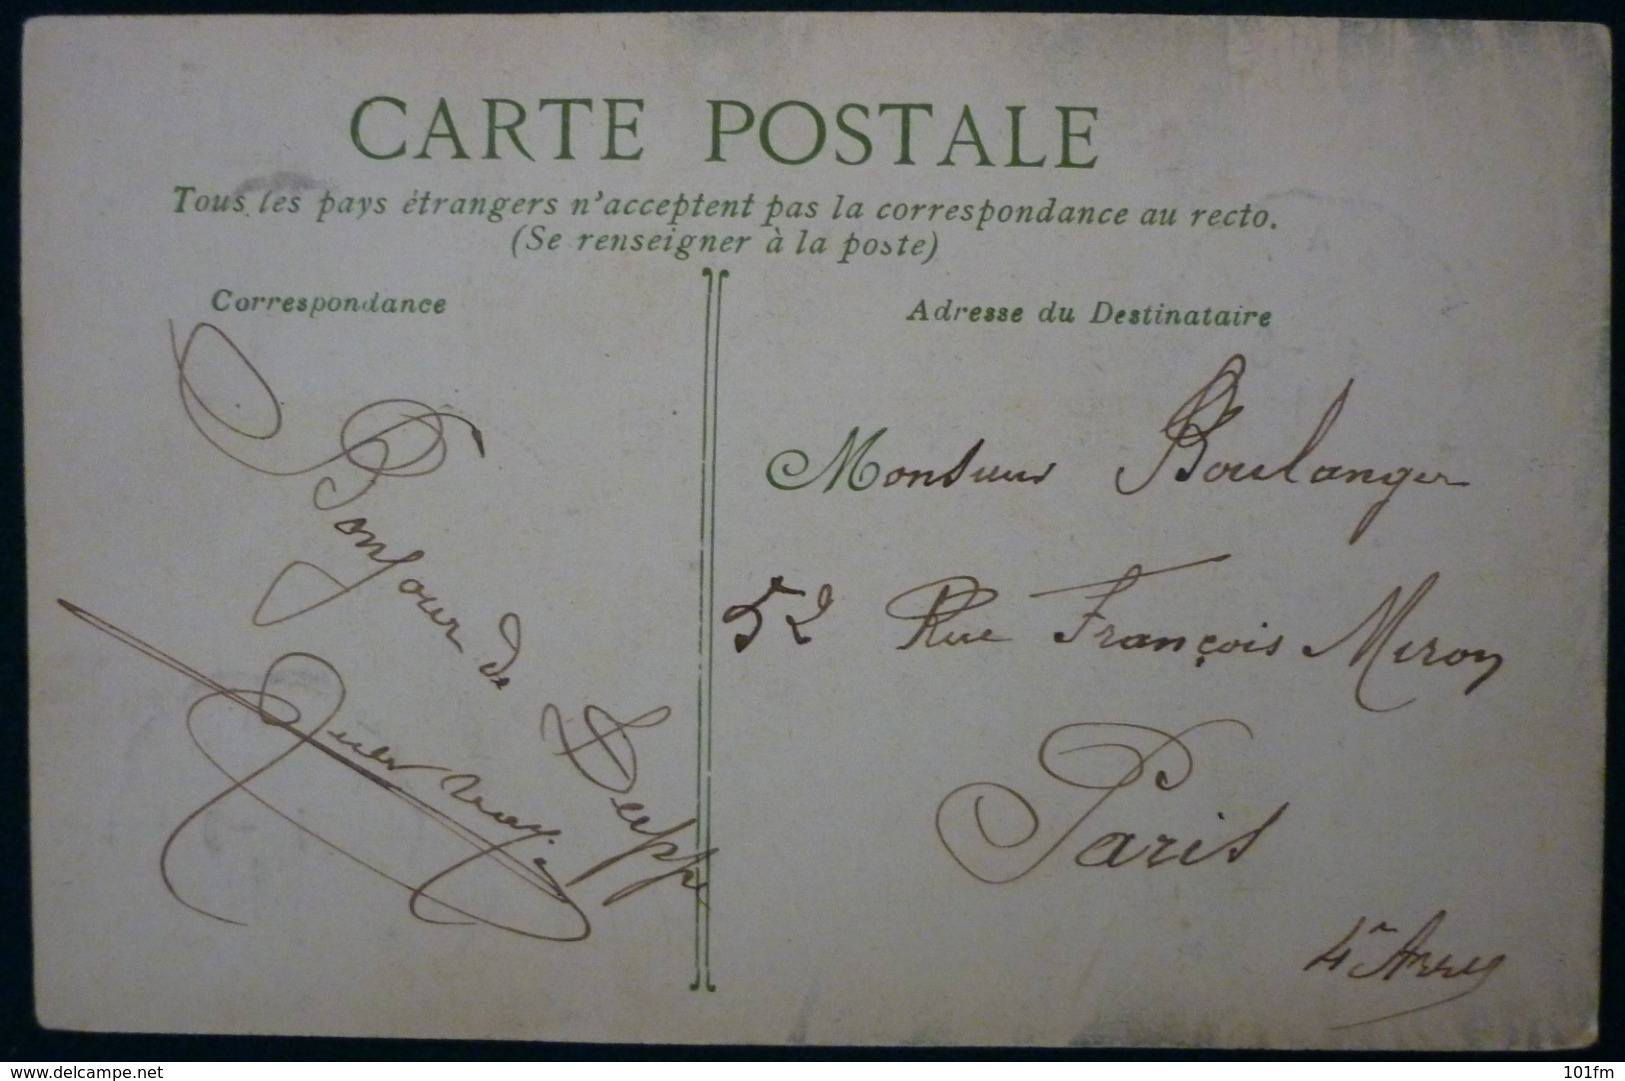 CARTE POSTALE
Tous les pays étrangers n'acceptent pas la correspondance au recto.
(Se renseigner à la poste)
Correspondance
Bonjour de
Adresse du Destinataire
Monsieur Boulanger
52 Rue François Miron
Paris
4e Arre
delcampe.net
101fm